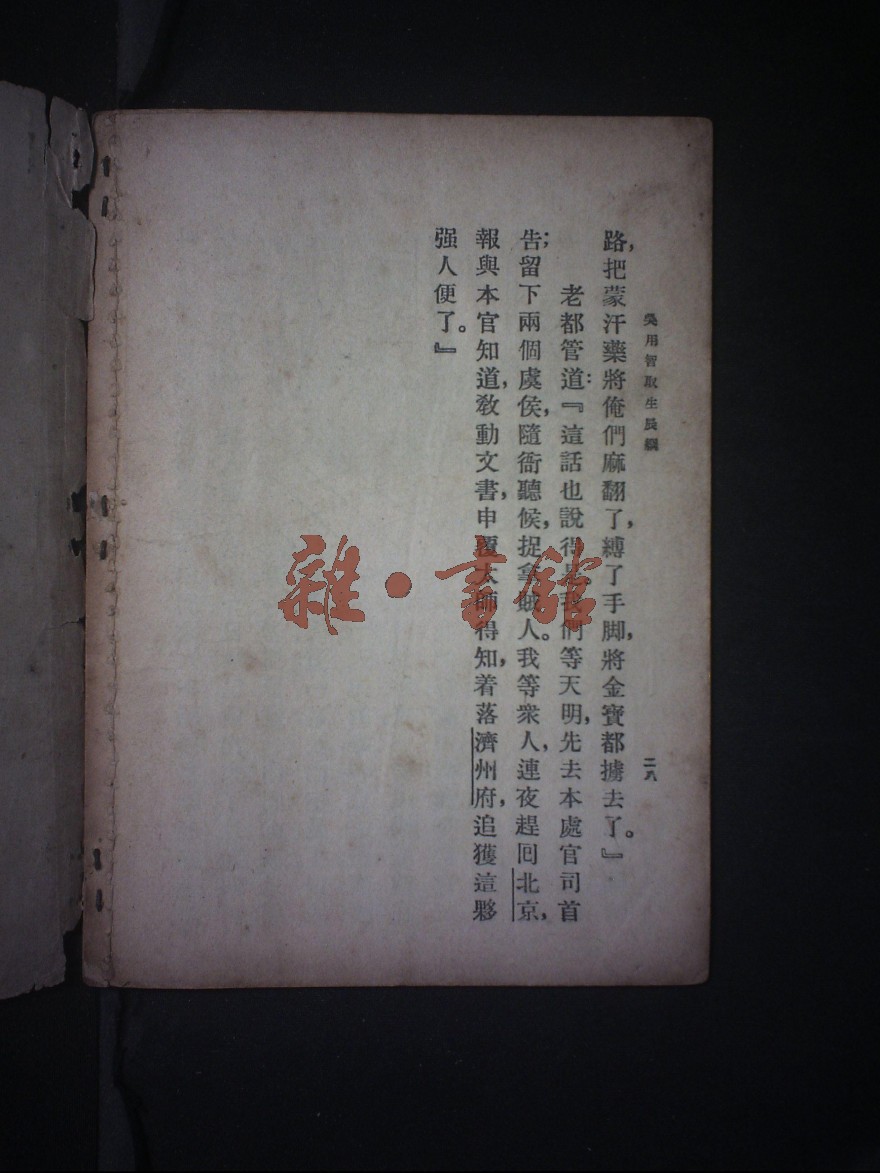 吳用智取生辰綱
二八
路，把蒙汗藥將俺們麻翻了，縛了手脚，將金寶都擄去了。』
老都管道：『這話也說得是。我們等天明，先去本處官司首
告；留下兩個虞侯，隨衙聽候，捉拿賊人。我等衆人，連夜趕回北京，
報與本官知道，教動文書，申覆太師得知，着落濟州府，追獲這夥
强人便了。』
雜·書館